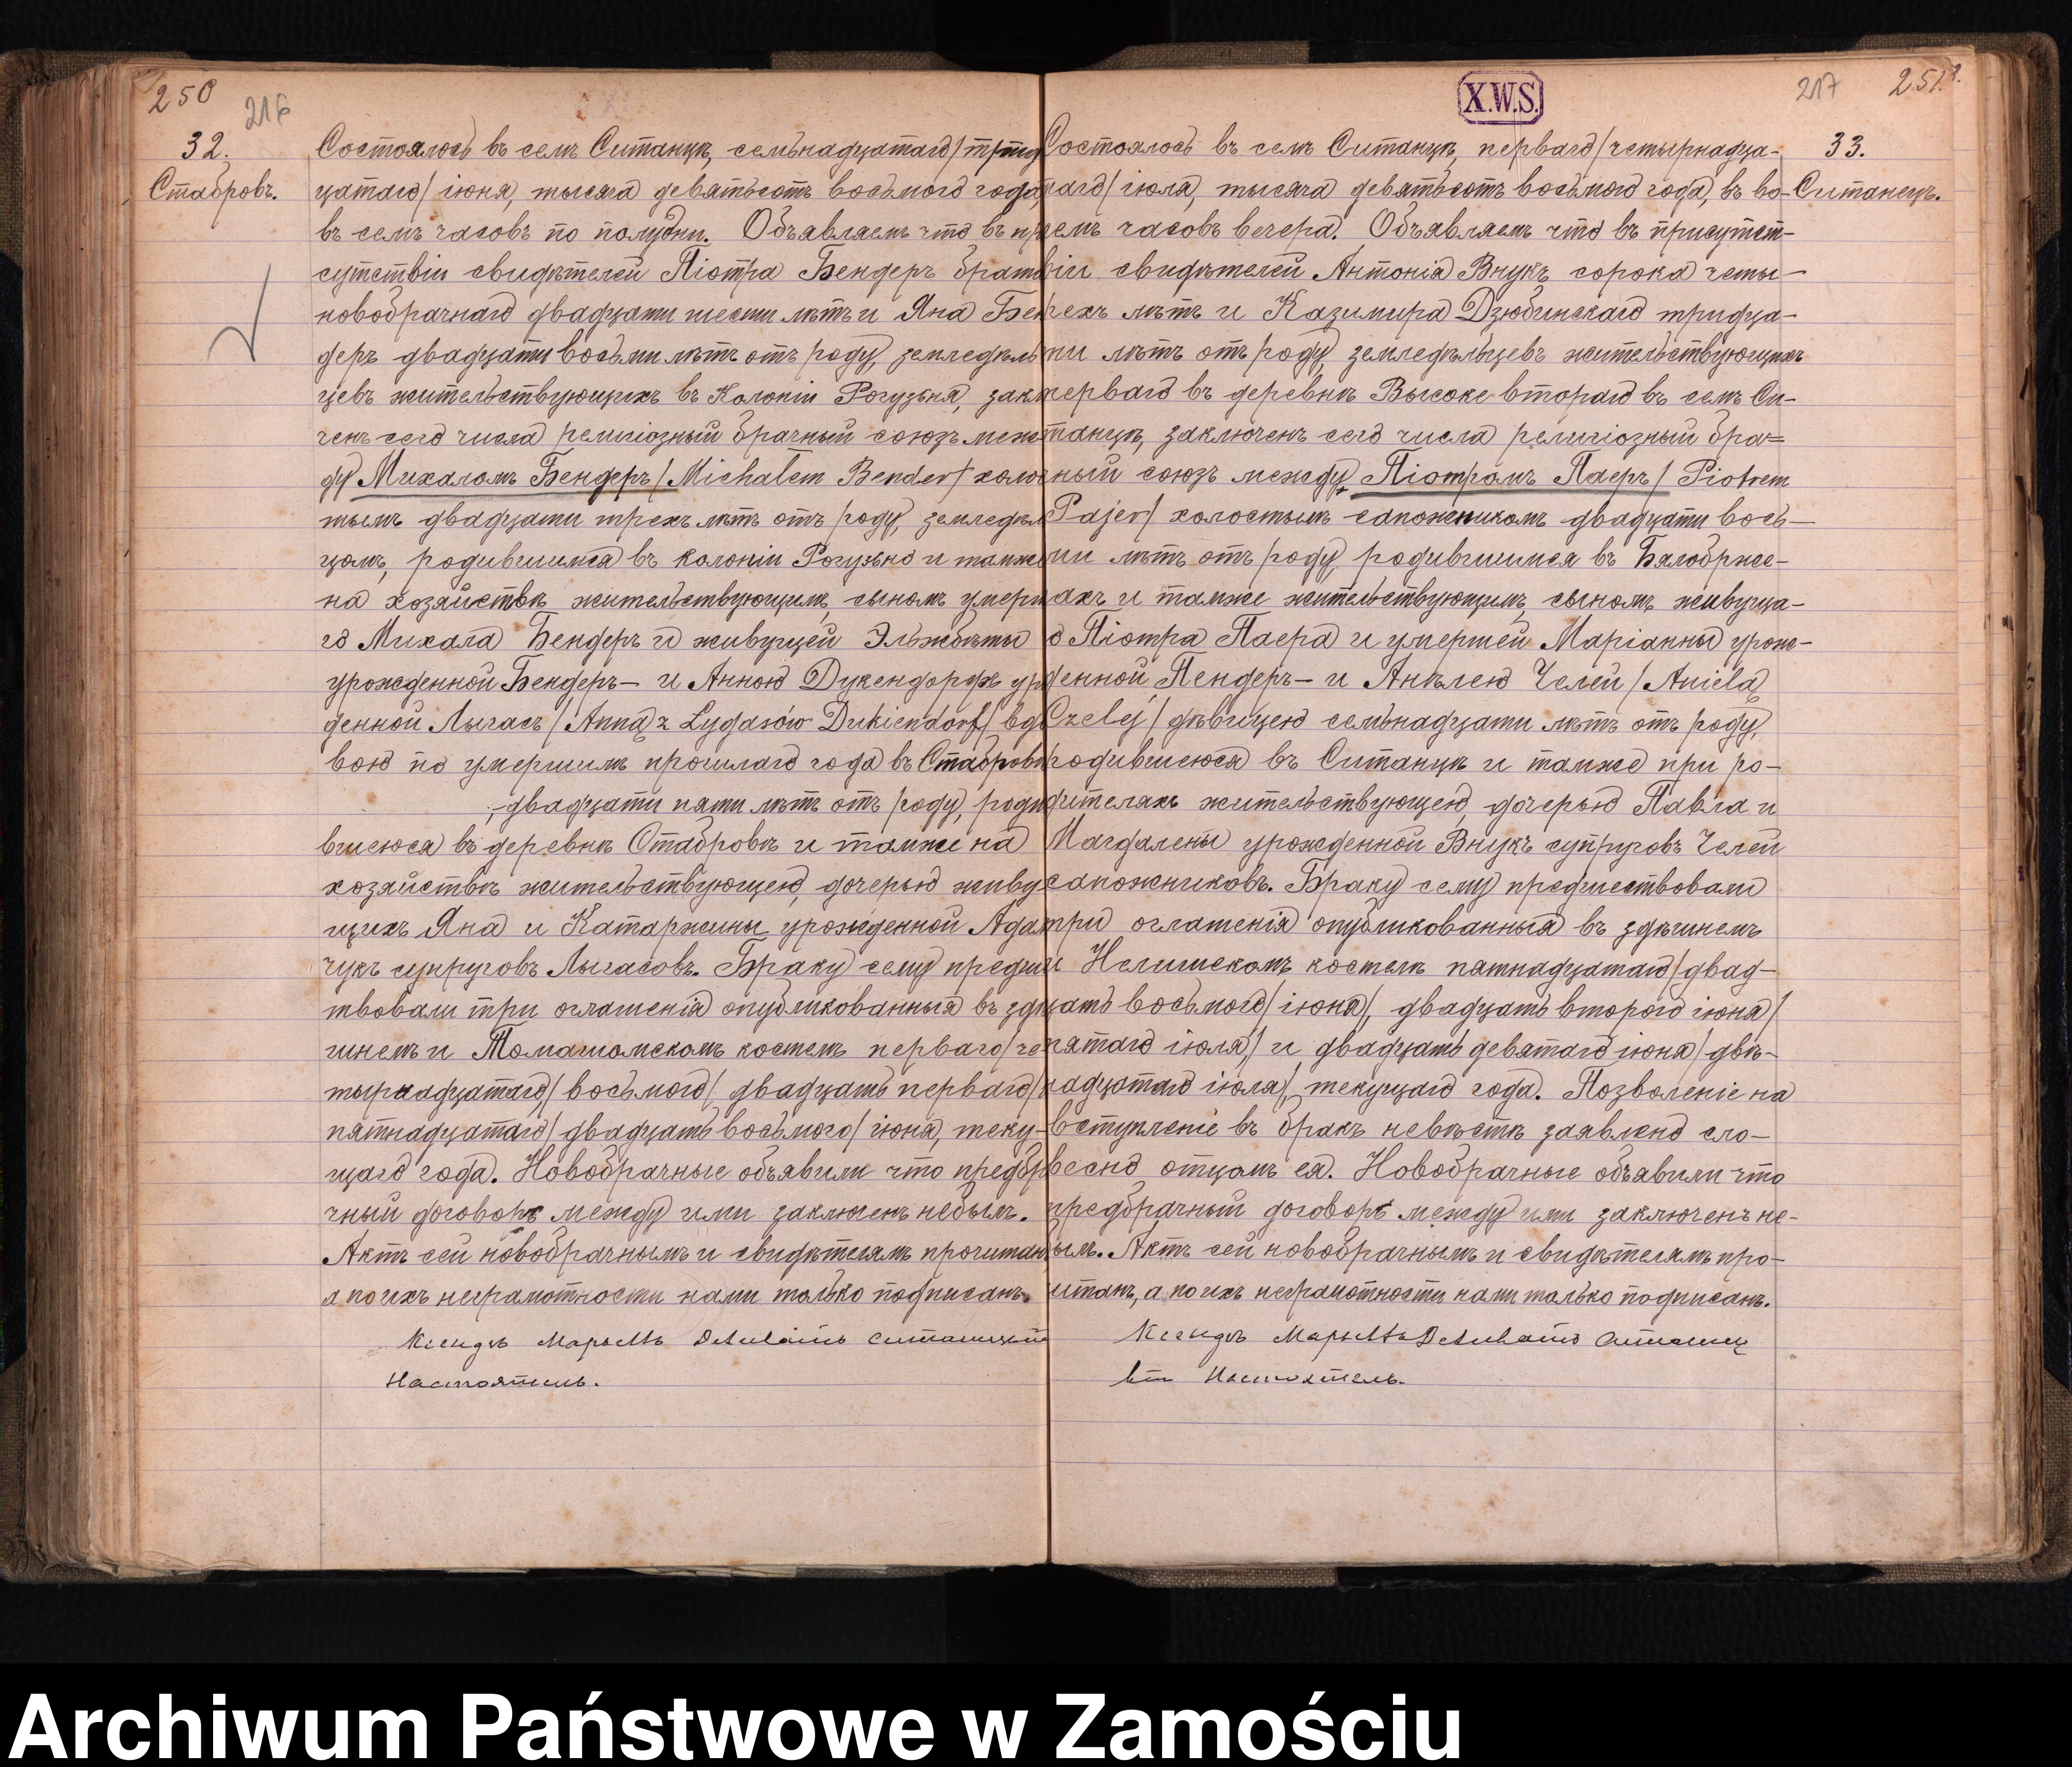 250
216
32.
Ставровъ.
Состоялось въ семъ Ситанцѣ, семьнадцатаго/трид
цатаго/ іюня, тысяча девятьсотъ восьмого года,
въ семъ часовъ по полудни. Объявляемъ что въ при
сутствіи свидѣтелей Піотра Бендеръ брата
новобрачнаго двадцати шести лѣтъ и Яна Бен
деръ двадцати восьми лѣтъ отъ роду, земледѣль
цевъ жительствующихъ въ Колоніи Рогузьня, заклю
ченъ сего числа религіозный брачный союзъ меж
ду Михаломъ Бендеръ/Michałem Bender/ холос
тымъ двадцати трехъ лѣтъ отъ роду, земледѣль
цомъ, родившимся въ колоніи Рогузьно и тамже
на хозяйствѣ жительствующимъ, сыномъ умерша
го Михала Бендеръ и живущей Эльжбѣты
урожденной Бендеръ — и Анною Дукендорфъ уро
денной Лыгасъ/Anną z Lygasów Dukiendorf/ вдо
вою по умершимъ прошлаго года въ Ставровѣ
двадцати пяти лѣтъ отъ роду, роди
вшеюся въ деревнѣ Ставровѣ и тамже на
хозяйствѣ жительствующею, дочерью живу
щихъ Яна и Катаржины урожденной Адам
чукъ супруговъ Лыгасовъ. Браку сему предшес
твовали три оглашенія опубликованныя въ здѣ
шнемъ и Томашомскомъ костелѣ перваго/че
тырнадцатаго/, восьмого/двадцать перваго/,
пятнадцатаго/двадцать восьмого/ іюня, теку-
щаго года. Новобрачные объявили что предбра
чный договоръ между ими заключенъ небылъ.
Актъ сей новобрачнымъ и свидѣтелямъ прочитанъ
а по ихъ неграмотности нами только подписанъ.
Ксендзъ Марьянъ Ситанецкій
Настоятель.
X.W.S.
217
251.
33.
Ситанецъ.
Состоялось въ семъ Ситанцѣ, перваго/четырнадца-
таго/ іюля, тысяча девятьсотъ восьмого года, въ во-
семъ часовъ вечера. Объявляемъ что въ присутст-
віи свидѣтелей Антонія Внукъ сорока четы-
рехъ лѣтъ и Казимира Дзюбинскаго тридца-
ти лѣтъ отъ роду, земледѣльцевъ жительствующихъ
перваго въ деревнѣ Высоке втораго въ семъ Си-
танцѣ, заключенъ сего числа религіозный бра-
чный союзъ между Піотромъ Паеръ/Piotrem
Pajer/ холостымъ сапожникомъ двадцати вось-
ми лѣтъ отъ роду, родившимся въ Бялобрже-
гахъ и тамже жительствующимъ, сыномъ живуща-
го Піотра Паера и умершей Маріанны урож-
денной Пендеръ — и Анѣлею Челей/Anielą
Czelej/ дѣвицею семьнадцати лѣтъ отъ роду,
родившеюся въ Ситанцѣ и тамже при ро-
дителяхъ жительствующею, дочерью Павла и
Магдалены урожденной Внукъ супруговъ Челей
сапожниковъ. Браку сему предшествовали
три оглашенія опубликованныя въ здѣшнемъ
и Нелишскомъ костелѣ пятнадцатаго/двад-
цать восьмого/іюня/, двадцать второго іюня/
пятаго іюля,/ и двадцать девятаго іюня/двѣ-
надцатаго іюля/, текущаго года. Позволеніе на
вступленіе въ бракъ невѣстѣ заявлено сло-
весно отцомъ ея. Новобрачные объявили что
предбрачный договоръ между ими заключенъ не-
былъ. Актъ сей новобрачнымъ и свидѣтелямъ про-
читанъ, а по ихъ неграмотности нами только подписанъ.
Ксендзъ Марьянъ Ситанец
кій Настоятель.
Archiwum Państwowe w Zamościu